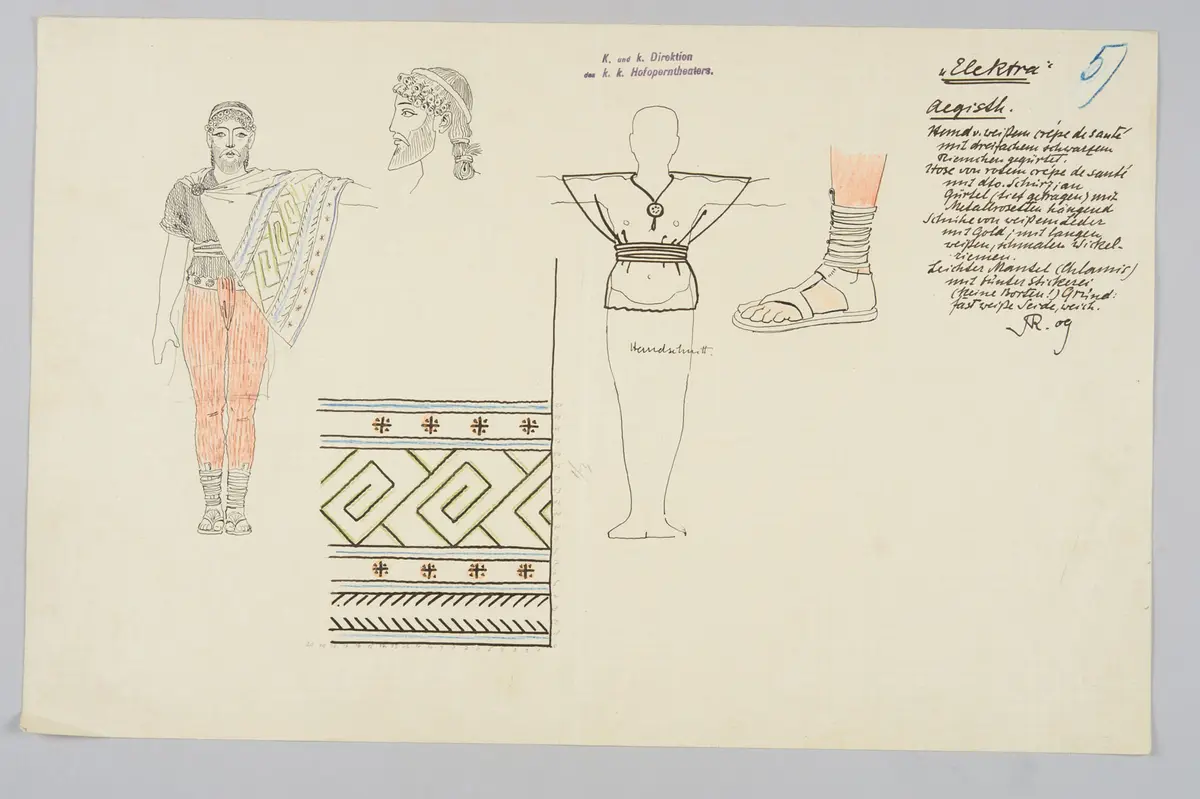 K. und k. Direktion
des k. k. Hofoperntheaters.
"Elektra"
5)
Aegisth.
Hemd v. weißem crépe de santé
mit dreifachem schwarzen
Riemchen gegürtet.
Hose von rotem crépe de santé
mit dto. Schurz; an
Gürtel (tief getragen) mit
Metallrosetten hängend
Schuhe von weißem Leder
mit Gold; mit langen,
weißen, schmalen Wickel-
riemen.
Leichter Mantel (Chlamis)
mit bunter Stickerei
(keine Borten!) Grund:
fast weiße Seide, weich.
AR. 09
Hemdschnitt.